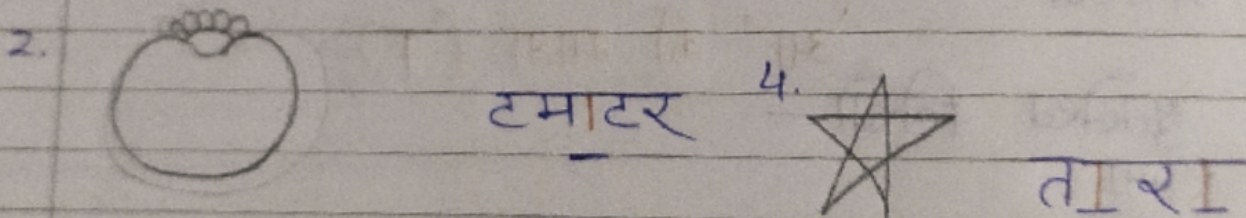 2. टमाटर
4. तारा